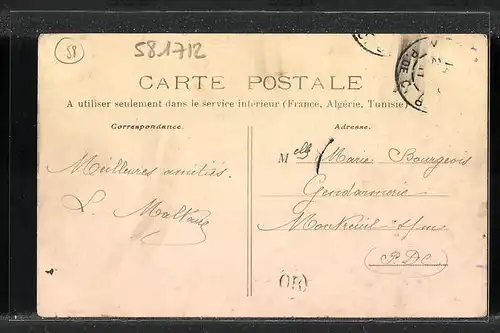 58
581712
CARTE POSTALE
A utiliser seulement dans le service intérieur (France, Algérie, Tunisie)
Correspondance.
Adresse.
Meilleures amitiés.
L.
Melle Marie Bourgeois
Gendarmerie
Montreuil s/m
P.D.C.
OR